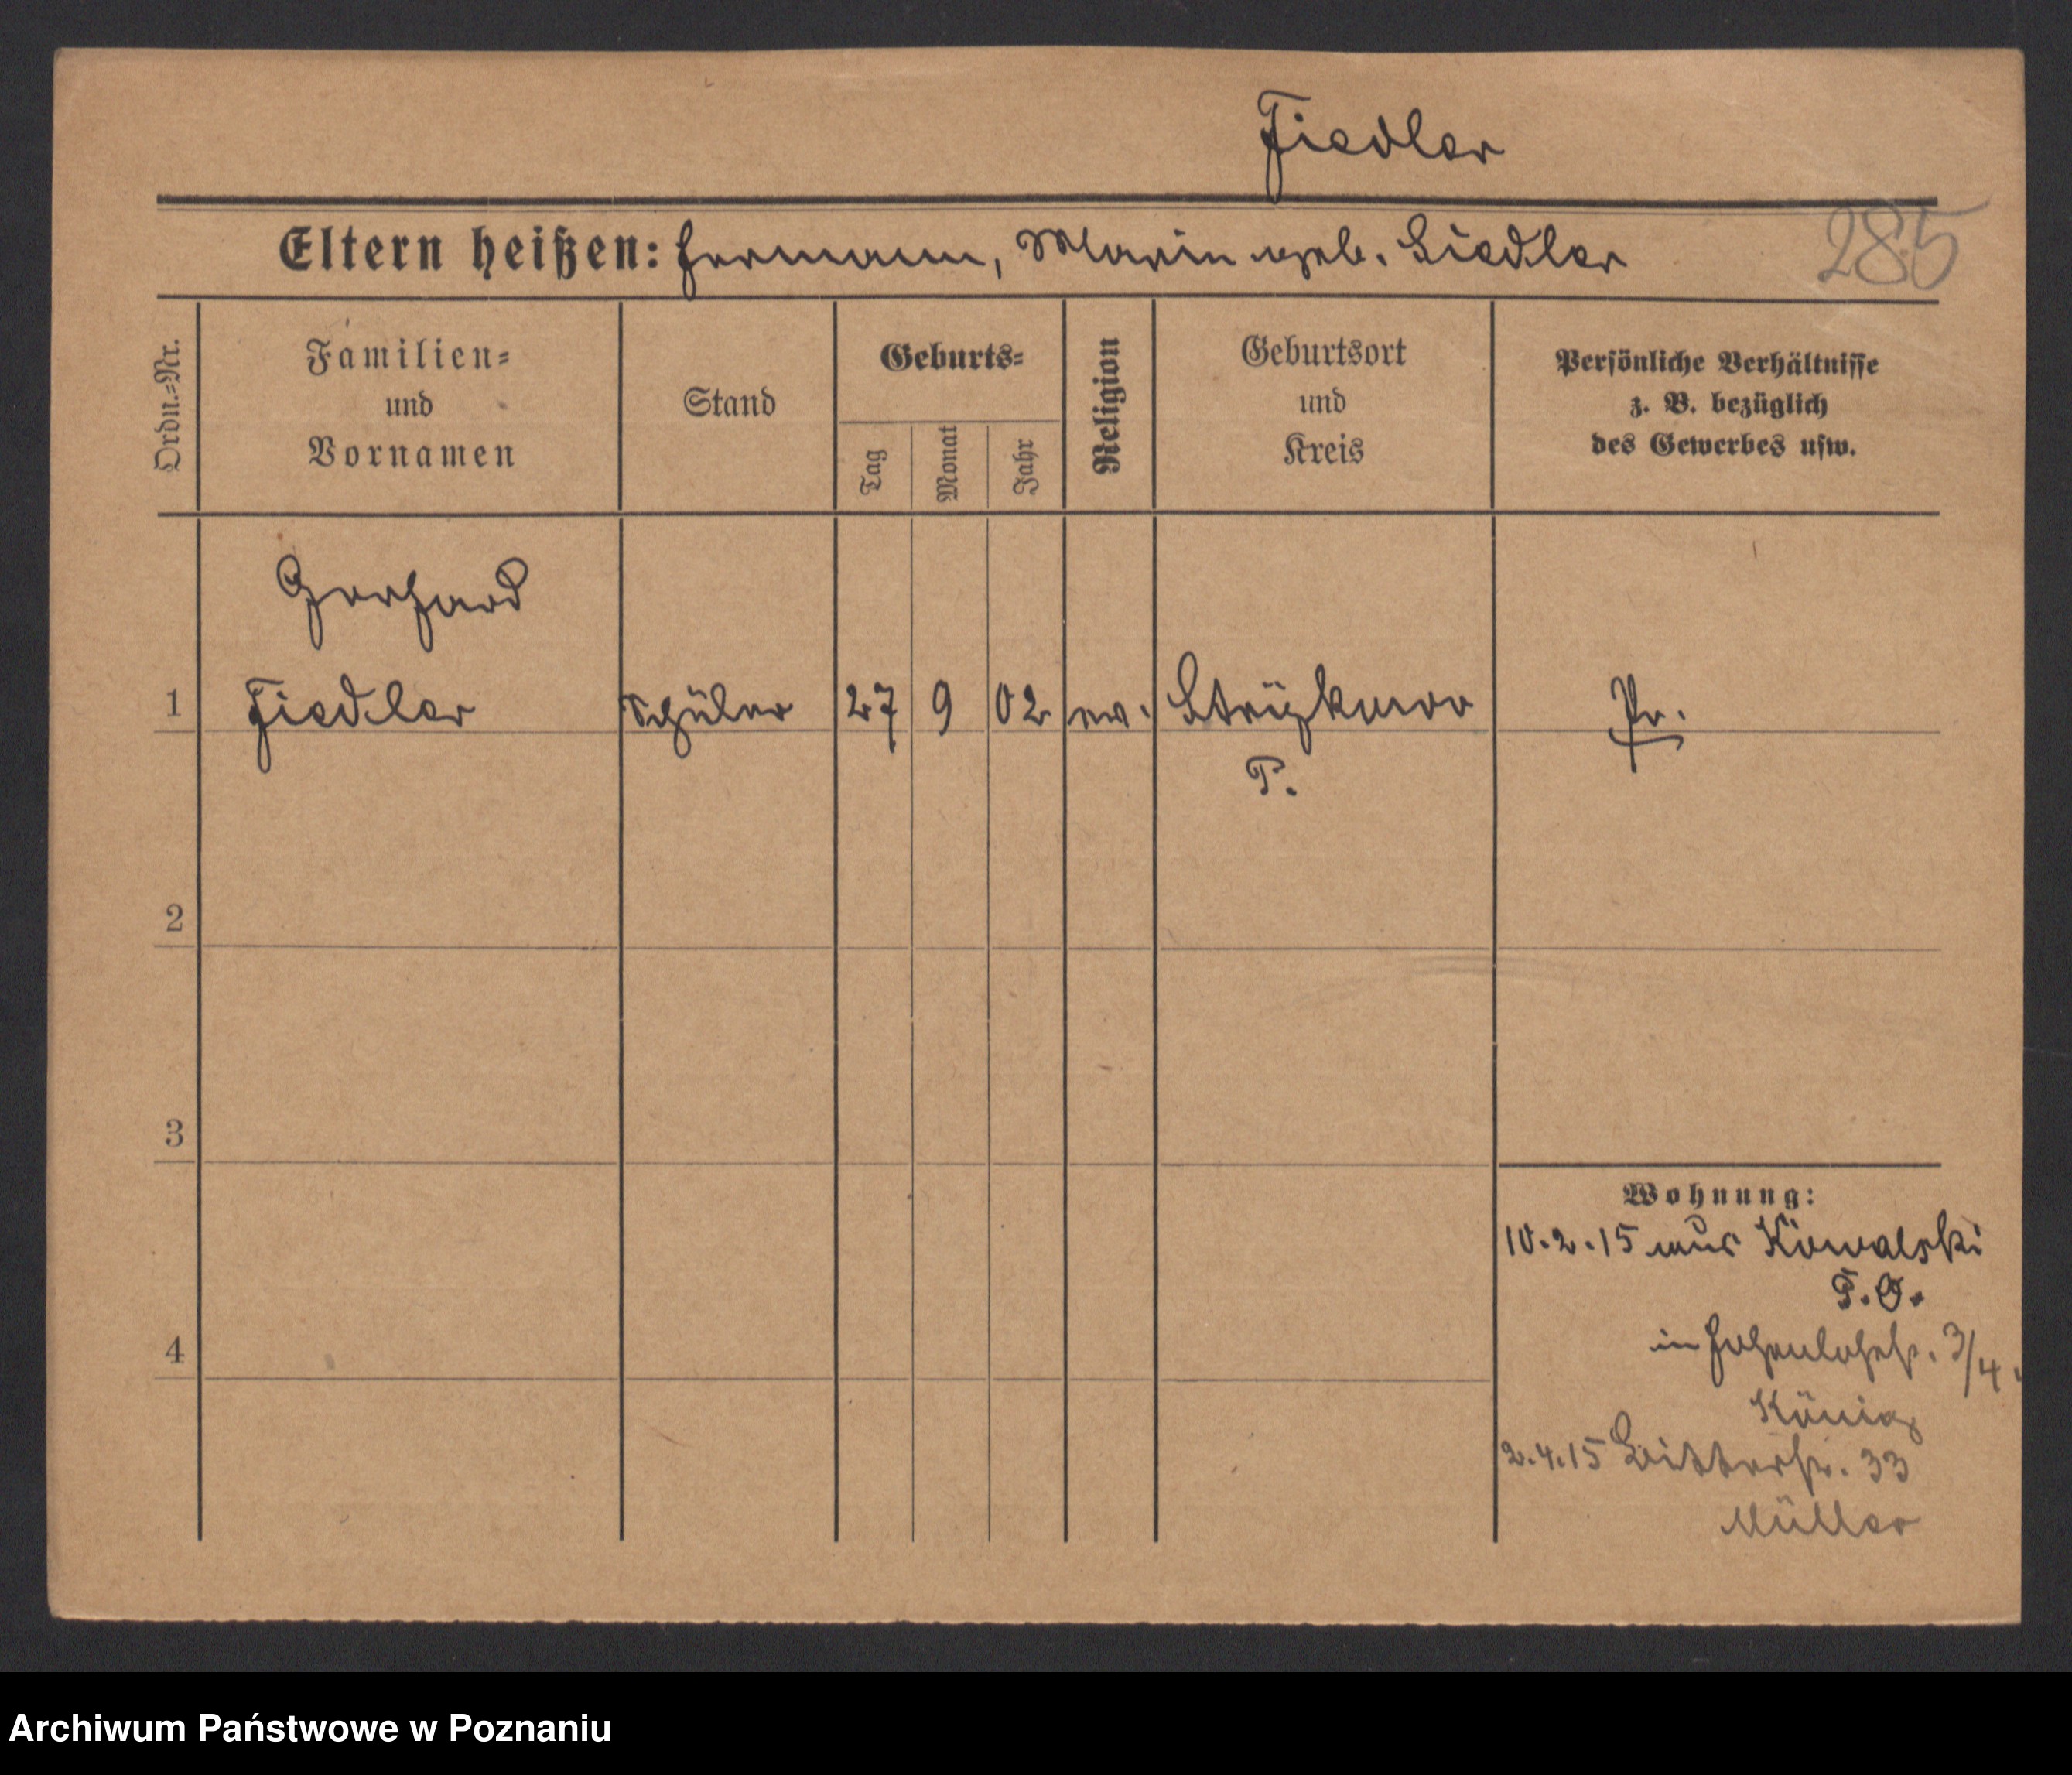 Fiedler
Eltern heißen: Hermann, Marie geb. Liedler
285
Ordn.-Nr.
Familien- und Vornamen
Stand
Geburts-
Tag
Monat
Jahr
Religion
Geburtsort und Kreis
Persönliche Verhältnisse
z. B. bezüglich
des Gewerbes usw.
Gerhard
1 Fiedler Schüler 27 9 02 ev. Pr.
P.
2
3
4
Wohnung:
10.2.15 aus Kowalski
P.O.
in Hohenlohestr. 3/4.
König
2.4.15 Ritterstr. 33
Müller
Archiwum Państwowe w Poznaniu